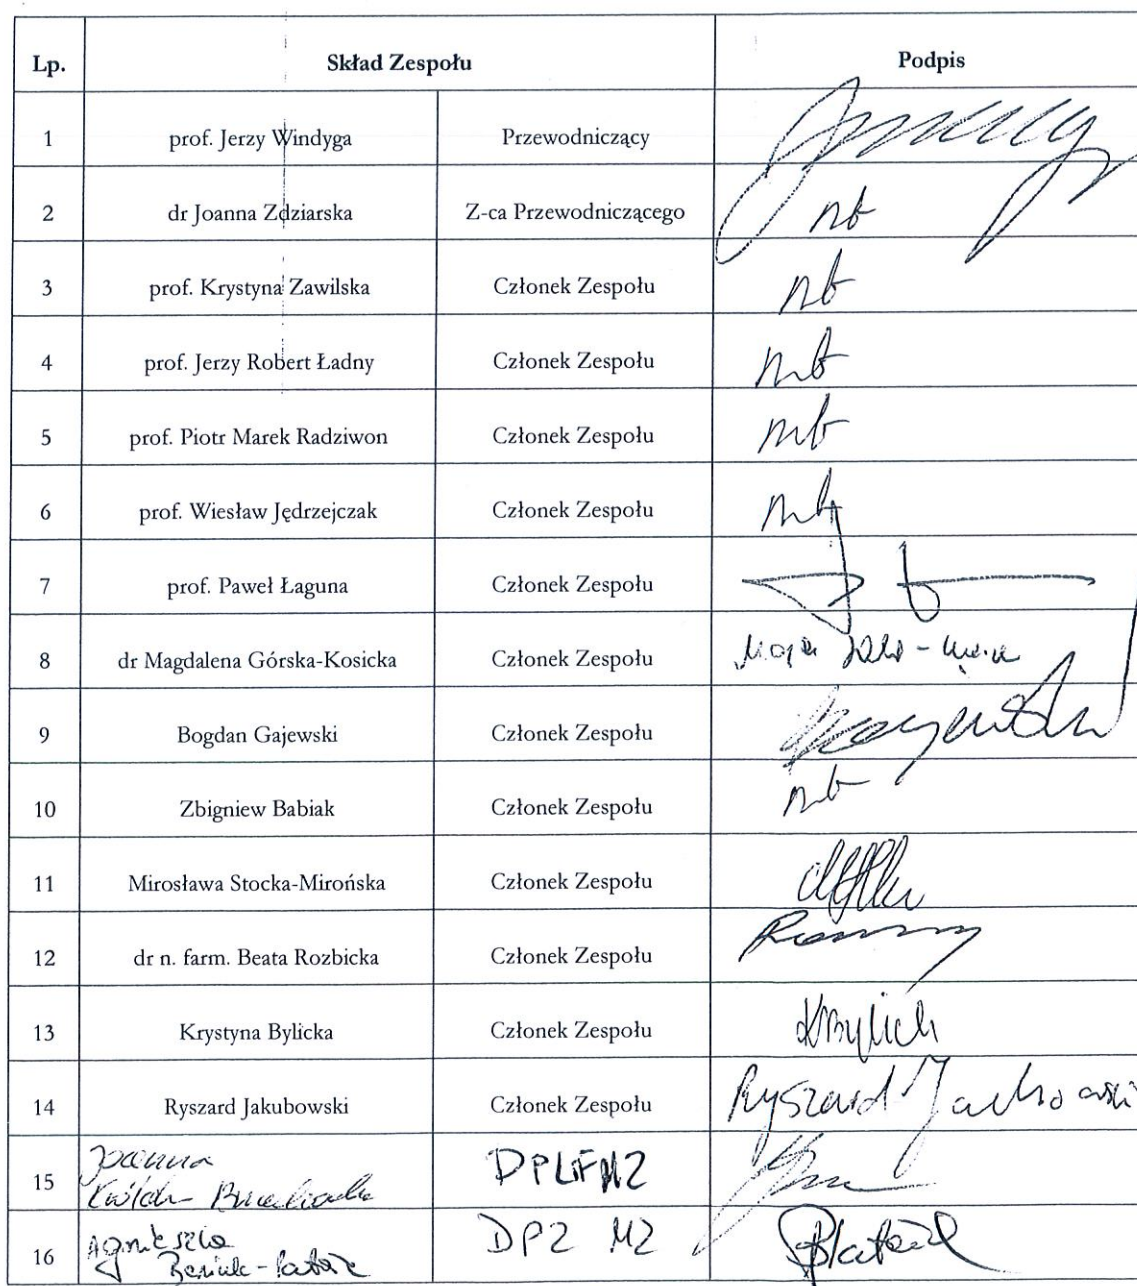 Lp. Skład Zespołu Podpis
1 prof. Jerzy Windyga Przewodniczący
2 dr Joanna Zdziarska Z-ca Przewodniczącego nb
3 prof. Krystyna Zawilska Członek Zespołu nb
4 prof. Jerzy Robert Ładny Członek Zespołu nb
5 prof. Piotr Marek Radziwon Członek Zespołu nb
6 prof. Wiesław Jędrzejczak Członek Zespołu nb
7 prof. Paweł Łaguna Członek Zespołu
8 dr Magdalena Górska-Kosicka Członek Zespołu
9 Bogdan Gajewski Członek Zespołu
10 Zbigniew Babiak Członek Zespołu nb
11 Mirosława Stocka-Mirońska Członek Zespołu
12 dr n. farm. Beata Rozbicka Członek Zespołu
13 Krystyna Bylicka Członek Zespołu
14 Ryszard Jakubowski Członek Zespołu Ryszard
15 Joanna DPLiFMZ
16 Agnieszka DPZ MZ